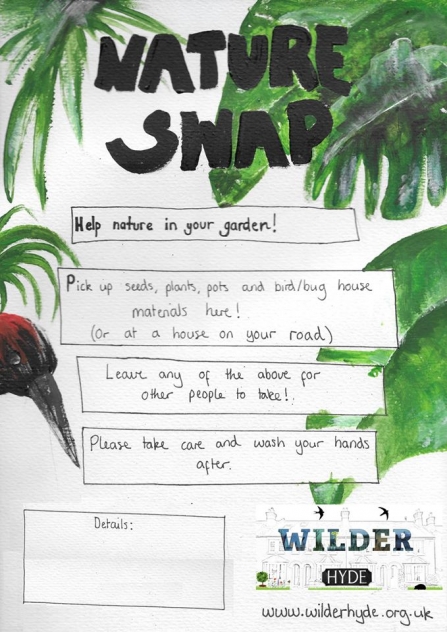 NATURE
SWAP
Help nature in your garden!
Pick up seeds, plants, pots and bird/bug house
materials here!
(Or at a house on your road)
Leave any of the above for
other people to take!
Please take care and wash your hands
after.
Details:
WILDER
HYDE
www.wilderhyde.org.uk